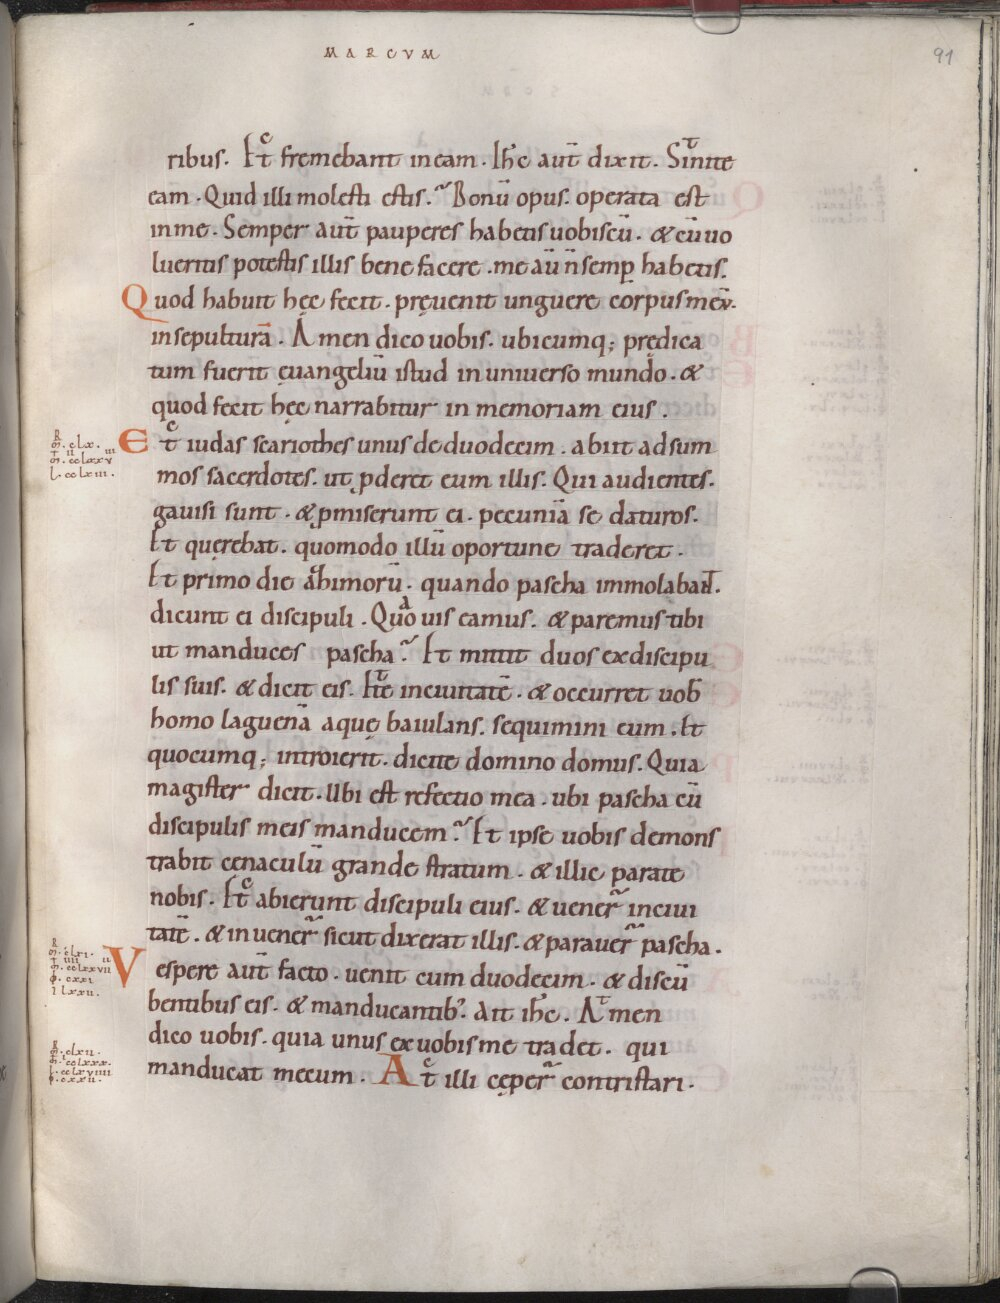 MARCVM
91
ribus. Et fremebant in eam. Ihc aut̄ dixit. Sinite
eam. Quid illi molesti estis. Bonū opus. operata est
in me. Semper aut̄ pauperes habetis uobiscū. & cū uo
lueritis potestis illis bene facere. me aū n̄ semp habetis.
Quod habuit hęc fecit. pręuenit unguere corpus meū.
in sepulturā. Amen dico uobis. ubicumq; prędica
tum fuerit euangeliū istud in uniuerso mundo. &
quod fecit hęc narrabitur in memoriam eius.
Et iudas scariothes unus de duodecim. abiit ad sum
mos sacerdotes. ut pderet eum illis. Qui audientes.
gauisi sunt. & pmiserunt ei. pecuniā se daturos.
Et querebat. quomodo illū oportune traderet.
Et primo die azimorū. quando pascha immolabant.
dicunt ei discipuli. Quo uis eamus. & paremus tibi
ut manduces pascha. Et mittit duos ex discipu
lis suis. & dicit eis. Ite in ciuitatē. & occurret uob
homo laguenā aquę baiulans. sequimini eum. Et
quocumq; introierit. dicite domino domus. Quia
magister dicit. Ubi est refectio mea. ubi pascha cū
discipulis meis manducem. Et ipse uobis demons
trabit cenaculū grande stratum. & illic parate
nobis. Et abierunt discipuli eius. & uener in ciui
tatē. & inuener sicut dixerat illis. & parauer pascha.
Vespere aut̄ facto. uenit cum duodecim. & discū
bentibus eis. & manducantib. ait ihc. Amen
dico uobis. quia unus ex uobis me tradet. qui
manducat mecum. At illi cęper contristari.
R
m. clx.
m. cclxxv
l. cclxiii.
R
m. clxi.
m. cclxxvii
l. lxxii.
R
m. clxii.
m. cclxxx.
l. cclxviiii